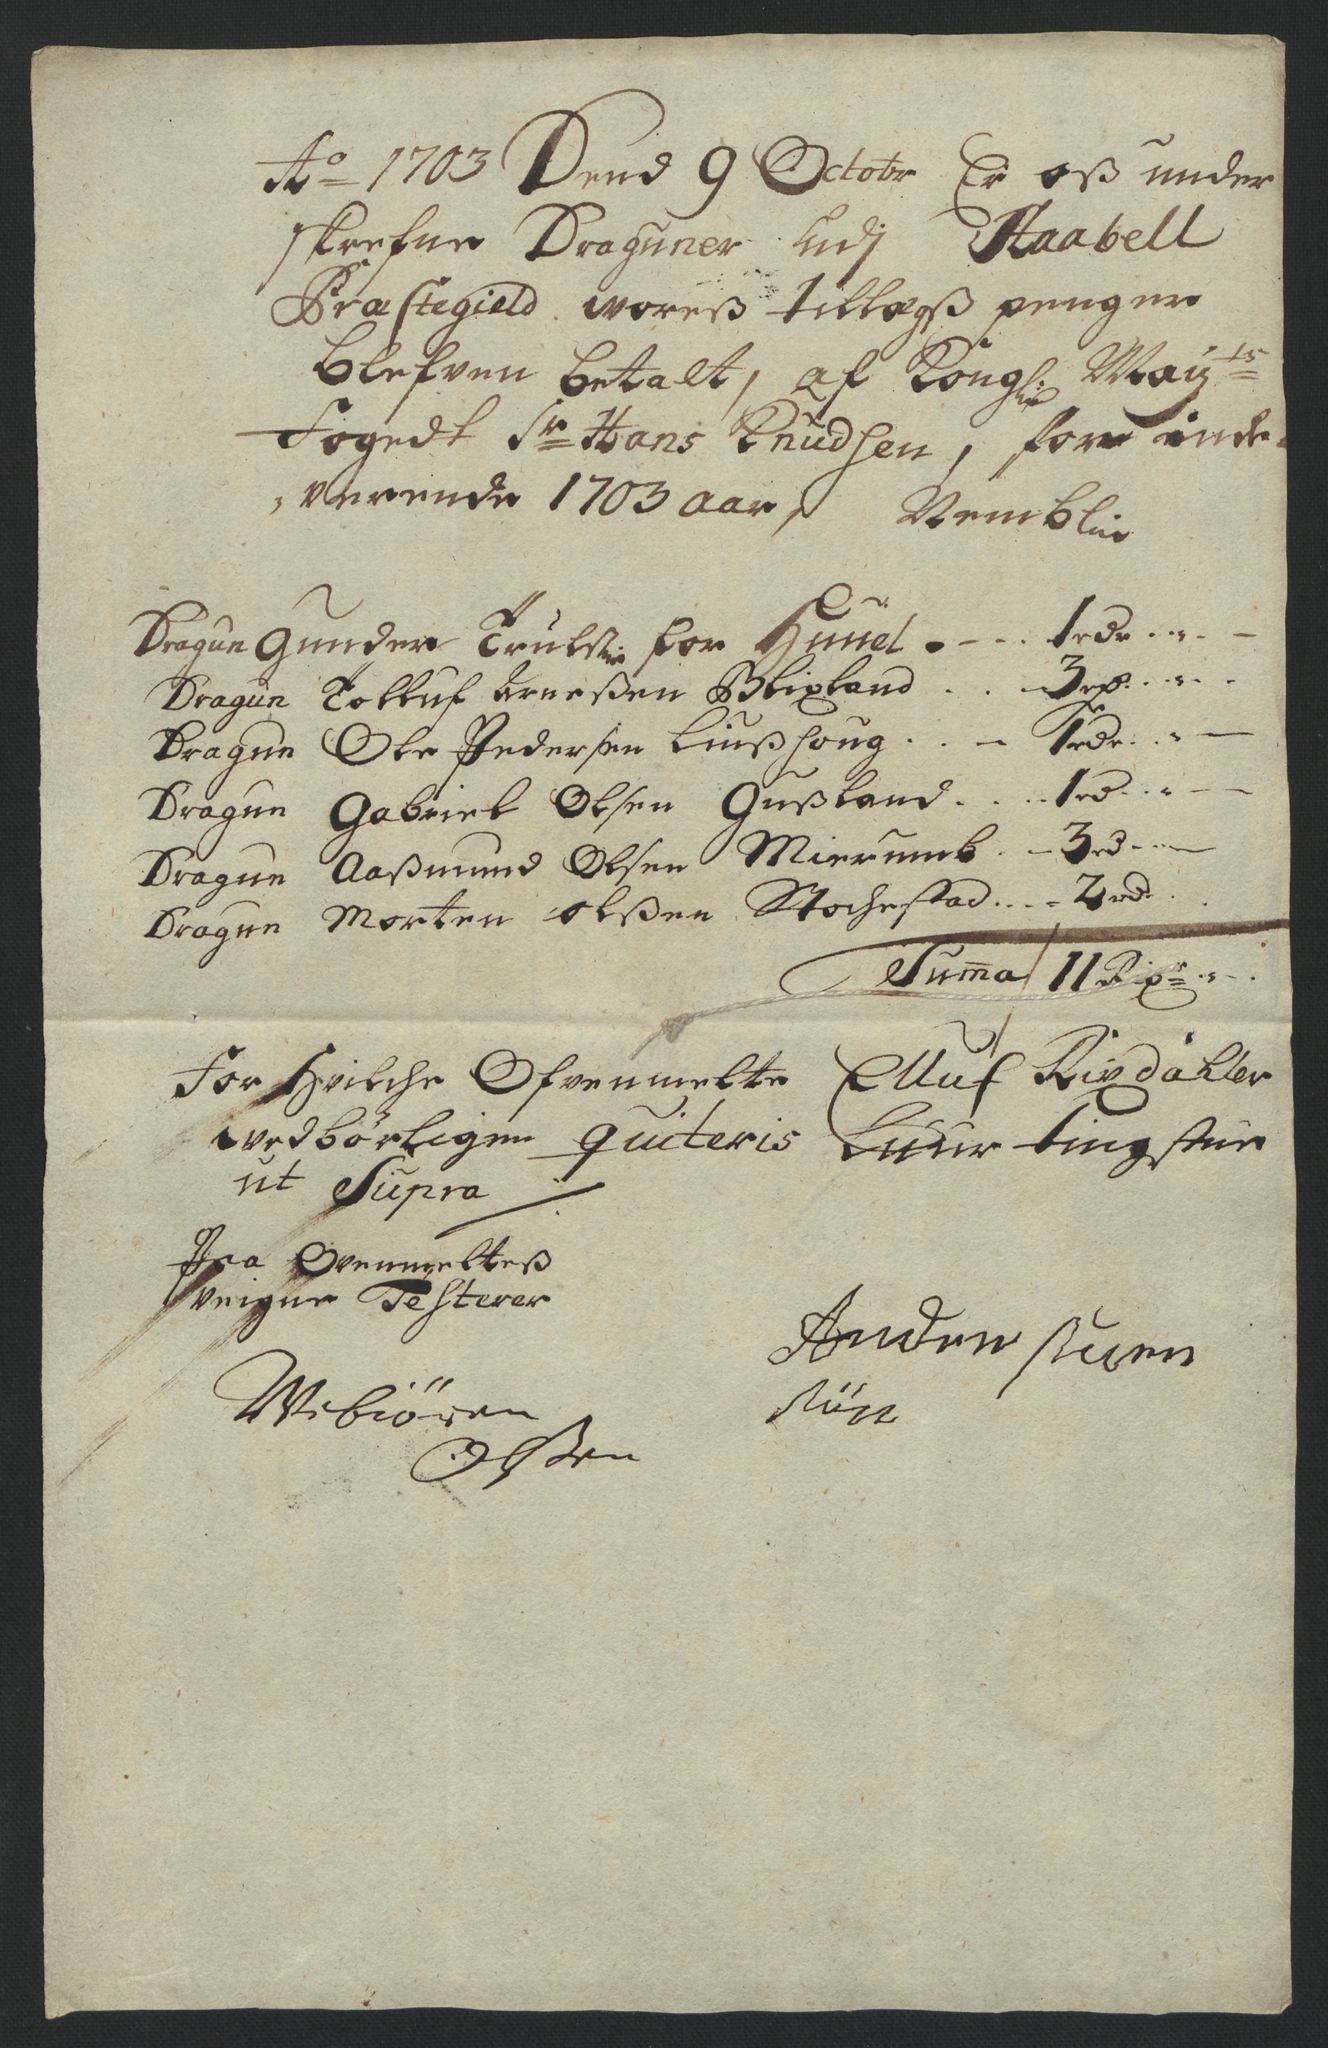 Ao 1703 Dend 9 Octobr Er oß under
skrefne Draguner udj Haabell
Præstegield woreß tillegß penger
blefven betalt, af Kongl: Mayts
Fogedt Sr Hans Knudsen, for inde-
verende 1703 aar, Nemblig
Dragun Gunder Trulsen for Hunel . - - . 1 rdr . . " . -
Dragun Tolluf Arneßen Blixland . . . 3 rd . . " . -
Dragun Ole Pedersen Liußhoug . . - 1 rdr . . " -
Dragun Gabriel Olsen Gußland . . . . 1 rd . . " -
Dragun Aaßmund Olsen Mierumb . - 3 rd - . -
Dragun Morten olßen Stochestad . . . - 2 rd . .
Summa 11 Rixdr . " - .
For Hvilche Ofvenmelte Elluf Rixdahler
wedbørligen quiteris Huur tingstue
ut Supra
Paa Ovenmelteß
veigne Testerer
Anden
Webiören
Olßen